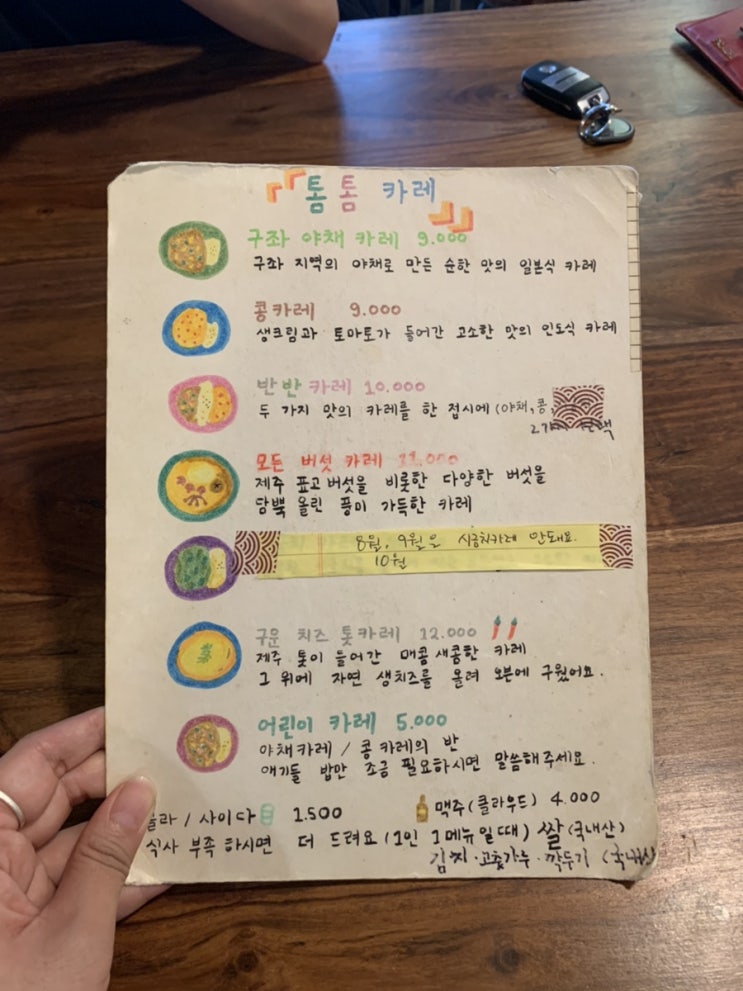 톰톰 카레
구좌 야채 카레 9.000
구좌 지역의 야채로 만든 순한 맛의 일본식 카레
콩카레 9.000
생크림과 토마토가 들어간 고소한 맛의 인도식 카레
반반 카레 10.000
두 가지 맛의 카레를 한 접시에 (야채, 콩,
2가지 선택
모든 버섯 카레 11,000
제주 표고버섯을 비롯한 다양한 버섯을
담뿍 올린 풍미 가득한 카레
8월, 9월은 시금치카레 안돼요.
10월
구운 치즈 톳카레 12.000
제주 톳이 들어간 매콤새콤한 카레
그 위에 자연 생치즈를 올려 오븐에 구웠어요.
어린이 카레 5.000
야채카레 / 콩 카레의 반
애기들 밥만 조금 필요하시면 말씀해주세요.
콜라 / 사이다 1.500
맥주 (클라우드) 4.000
식사 부족 하시면 더 드려요 (1인 1메뉴일때) 쌀 (국내산)
김치·고춧가루·깍두기 (국내산